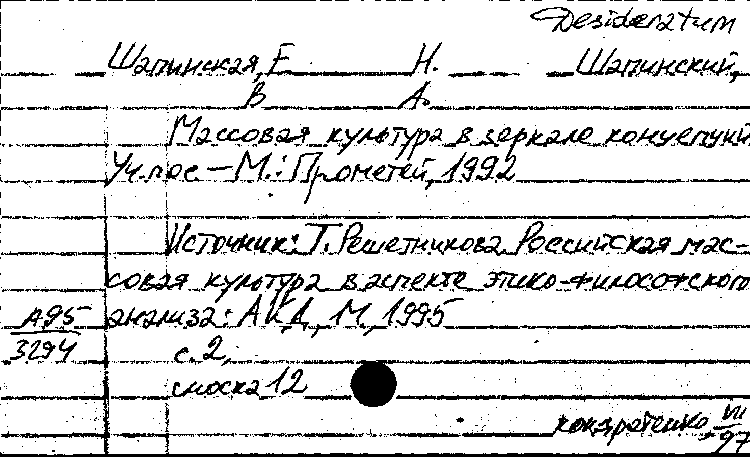 Desideratum
Шапинская, Е Н. Шапинский,
В А.
Массовая культура в зеркале концепций
Уч. пос. — М.: Прометей, 1992
Источник: Т. Решетникова Российская мас-
совая культура в аспекте этико-философского
А95 анализа: АКД, М, 1995
3294 с. 2,
сноска 12
кондратенко VII
97